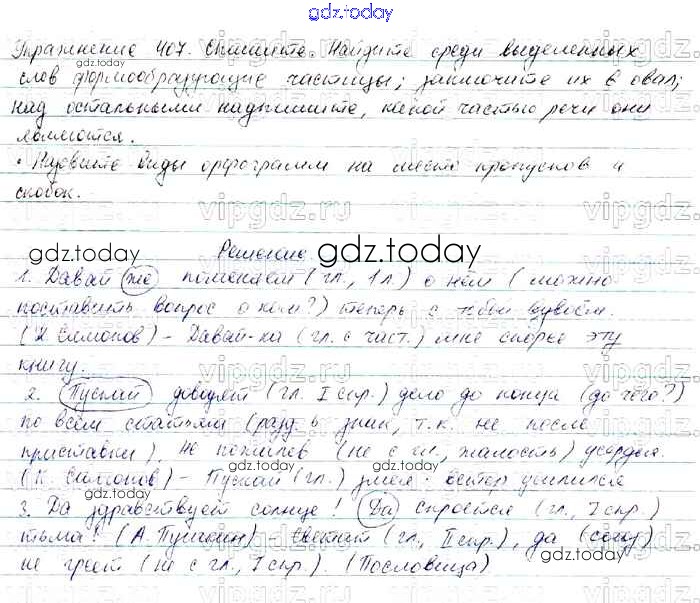 gdz.today
Упражнение 407. Спишите. Найдите среди выделенных
слов формообразующие частицы; заключите их в овал;
над остальными надпишите, какой частью речи они
являются.
• Назовите виды орфограмм на месте пропусков и
скобок.
vipgdz.ru
gdz.today
Решение.
gdz.today
1. Давай же помолчим (гл., 1 л.) о нём (можно
поставить вопрос о ком?) теперь с тобой вдвоём.
(К. Симонов) – Давай-ка (гл. с част.) мне скорее эту
книгу.
2. Пускай доведёт (гл. I спр.) дело до конца (до чего?)
по всем статьям (разд. ь знак, т.к. не после
приставки), не пожалев (не с гл., жалость) усердья.
(К. Симонов) – Пускай (гл.) змея: ветер усилился
gdz.today
3. Да здравствует солнце! Да скроется (гл., I спр.)
тьма! (А. Пушкин) Светит (гл., II спр.), да (союз)
не греет (не с гл., I спр.). (Пословица)
gdz.today
vipgdz.ru